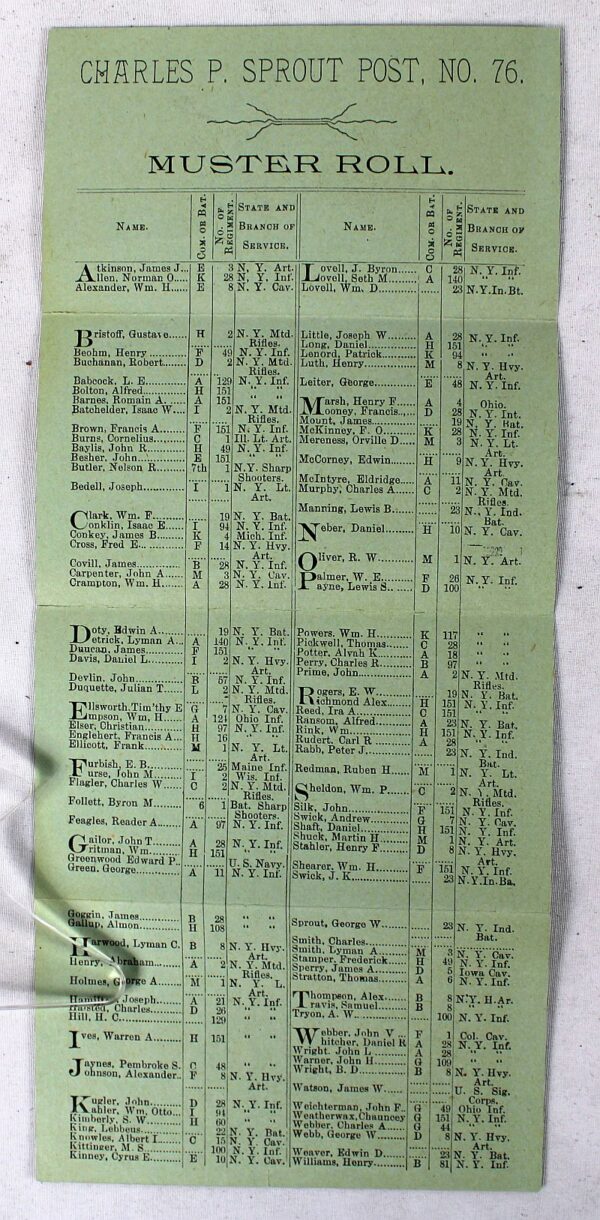 CHARLES P. SPROUT POST, NO. 76.
MUSTER ROLL.
NAME. COM. OR BAT. NO. OF REGIMENT. STATE AND BRANCH OF SERVICE.
Atkinson, James J... E 3 N. Y. Art.
Allen, Norman O..... K 28 N. Y. Inf.
Alexander, Wm. H..... E 8 N. Y. Cav.
Bristoff, Gustave...... H 2 N. Y. Mtd. Rifles.
Beohm, Henry ........... F 49 N. Y. Inf.
Buchanan, Robert........ D 2 N. Y. Mtd. Rifles.
Babcock, L. E............ A 129 N. Y. Inf.
Bolton, Alfred........... H 151 " "
Barnes, Romain A....... A 151 " "
Batchelder, Isaac W.... I 2 N. Y. Mtd. Rifles.
Brown, Francis A....... F 151 N. Y. Inf.
Burns, Cornelius......... C 1 Ill. Lt. Art.
Baylis, John R........... H 49 N. Y. Inf.
Besher, John............. E 151 " "
Butler, Nelson R........ 7th 1 N.Y. Sharp Shooters.
Bedell, Joseph........... I 1 N. Y. Lt. Art.
Clark, Wm. F........... 19 N. Y. Bat.
Conklin, Isaac E....... I 94 N. Y. Inf.
Conkey, James B....... K 4 Mich. Inf.
Cross, Fred E............ F 14 N. Y. Hvy. Art.
Covill, James............ B 28 N. Y. Inf.
Carpenter, John A...... M 3 N. Y. Cav.
Crampton, Wm. H...... A 28 N. Y. Inf.
Doty, Edwin A.......... 19 N. Y. Bat.
Detrick, Lyman A... A 140 N. Y. Inf.
Duncan, James.......... F 151 " "
Davis, Daniel L.......... I 2 N. Y. Hvy. Art.
Devlin, John............. B 57 N. Y. Inf.
Duquette, Julian T...... L 2 N. Y. Mtd. Rifles.
Ellsworth, Tim'thy E G 7 N. Y. Cav.
Empson, Wm, H..... A 124 Ohio Inf.
Elser, Christian.......... H 97 N. Y. Inf.
Englehert, Francis A... H 16 " "
Ellicott, Frank........... M 1 N. Y. Lt. Art.
Furbish, E. B............ 25 Maine Inf.
Furse, John M.......... I 2 Wis. Inf.
Flagler, Charles W...... C 2 N. Y. Mtd. Rifles.
Follett, Byron M......... 6 1 Bat. Sharp Shooters.
Feagles, Reader A...... A 97 N. Y. Inf.
Gailor, John T........... A 28 N. Y. Inf.
Gritman, Wm........... H 151 " "
Greenwood Edward P.. U. S. Navy.
Green, George........... A 11 N. Y. Inf.
Goggin, James........... B 28 " "
Gallup, Almon........... H 108 " "
Harwood, Lyman C. B 8 N. Y. Hvy. Art.
Henry, Abraham........ A 2 N. Y. Mtd. Rifles.
Holmes, George A...... M 1 N. Y. L. Art.
Joseph........... A 21 N. Y. Inf.
Halsted, Charles......... D 26 " "
Hill, H. C................. 129 " "
Ives, Warren A......... H 151 " "
Jaynes, Pembroke S. C 48 " "
Johnson, Alexander.. F 8 N. Y. Hvy. Art.
Kugler, John............ D 28 N. Y. Inf.
Kahler, Wm. Otto... I 94 " "
Kimberly, S. W.......... H 60 " "
King, Lebbeus........... 22 N. Y. Bat.
Knowles, Albert I....... C 15 N. Y. Cav.
Kittinger, M. S.......... 100 N. Y. Inf.
Kinney, Cyrus E......... E 10 N. Y. Cav.
NAME. COM. OR BAT. NO. OF REGIMENT. STATE AND BRANCH OF SERVICE.
Lovell, J. Byron...... C 28 N. Y. Inf.
Lovell, Seth M........ A 140 " "
Lovell, Wm. D........... 23 N.Y.In.Bt.
Little, Joseph W......... A 28 N. Y. Inf.
Long, Daniel............. H 151 " "
Lenord, Patrick.......... K 94 " "
Luth, Henry.............. M 8 N. Y. Hvy. Art.
Leiter, George........... E 48 N. Y. Inf.
Marsh, Henry F....... A 4 Ohio.
Mooney, Francis...... D 28 N. Y. Int.
Mount, James........... 19 N. Y. Bat.
McKinney, F. O......... K 28 N. Y. Inf.
Mereness, Orville D..... M 3 N. Y. Lt. Art.
McCorney, Edwin....... H 9 N. Y. Hvy. Art.
McIntyre, Eldridge..... A 11 N. Y. Cav.
Murphy, Charles A...... C 2 N. Y. Mtd. Rifles.
Manning, Lewis B....... 23 N. Y. Ind. Bat.
Neber, Daniel........... H 10 N. Y. Cav.
Oliver, R. W............ M 1 N. Y. Art.
Palmer, W. E........... F 26 N. Y. Inf.
Payne, Lewis S......... D 100 " "
Powers, Wm. H......... K 117 " "
Pickwell, Thomas....... C 28 " "
Potter, Alvah K......... A 18 " "
Perry, Charles R......... B 97 " "
Prime, John.............. A 2 N. Y. Mtd. Rifles.
Rogers, E. W............ 19 N. Y. Bat.
Richmond Alex........ H 151 N. Y. Inf.
Reed, Ira A............... C 151 " "
Ransom, Alfred.......... A 23 N. Y. Bat.
Rink, Wm................ H 151 N. Y. Inf.
Rudert, Carl R........... A 28 " "
Rabb, Peter J............. 23 N. Y. Ind. Bat.
Redman, Ruben H...... M 1 N. Y. Lt. Art.
Sheldon, Wm. P......... C 2 N. Y. Mtd. Rifles.
Silk, John................ F 151 N. Y. Inf.
Swick, Andrew.......... G 7 N. Y. Cav.
Shaft, Daniel............. H 151 N. Y. Inf.
Shuck, Martin H........ M 1 N. Y. Art.
Stahler, Henry F......... D 8 N. Y. Hvy. Art.
Shearer, Wm. H......... F 151 N. Y. Inf.
Swick, J. K............... 23 N.Y.In.Ba.
Sprout, George W........ 23 N. Y. Ind. Bat.
Smith, Charles...........
Smith, Lyman A......... M 3 N. Y. Cav.
Stamper, Frederick...... H 49 N. Y. Inf.
Sperry, James A.......... D 5 Iowa Cav.
Stratton, Thomas........ A 6 N. Y. Inf.
Thompson, Alex....... B 8 N.Y. H.Ar.
Travis, Samuel......... B 8 " "
Tryon, A. W.............. 100 N. Y. Inf.
Webber, John V ... F 1 Col. Cav.
Whitcher, Daniel R A 28 N. Y. Inf.
Wright, John L.......... A 28 " "
Warner, John H......... G 109 " "
Wright, B. D............. B 8 N. Y. Hvy. Art.
Watson, James W........ U. S. Sig. Corps.
Weichterman, John F.. G 49 Ohio Inf.
Weatherwax, Chauncey G 151 N. Y. Inf.
Webber, Charles A...... G 44 " "
Webb, George W......... D 8 N. Y. Hvy. Art.
Weaver, Edwin D........ 23 N. Y. Bat.
Williams, Henry......... B 81 N. Y. Inf.